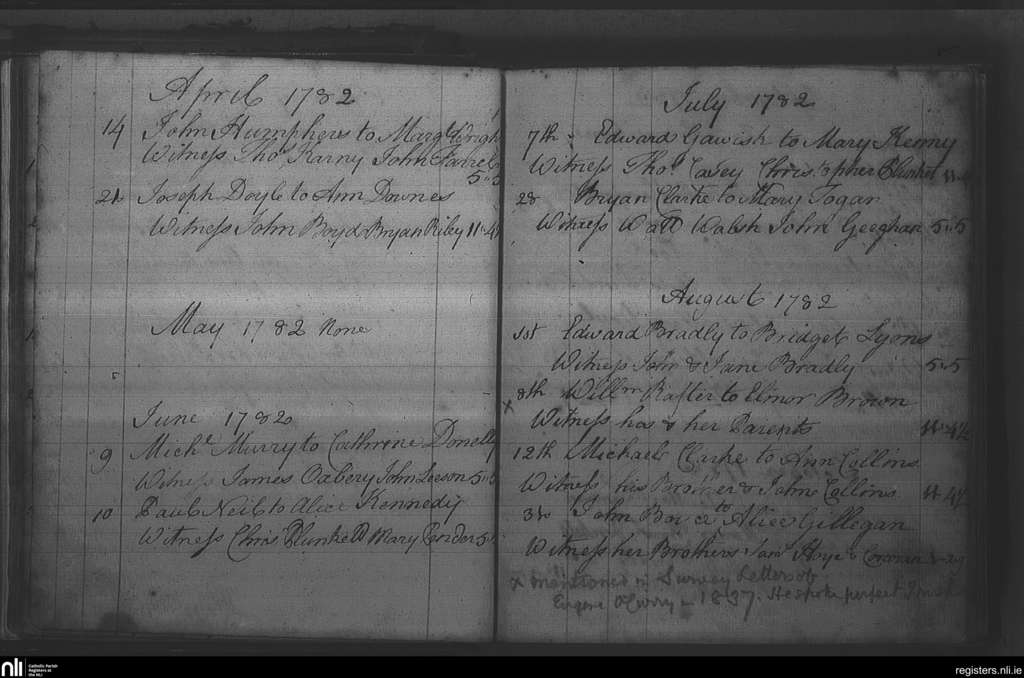 April 1782
14 John Humphers to Margt Wrigh
Witness Thos Karny John Farrel
5"5
21 Joseph Doyle to Ann Downes
Witness John Boyd Bryan Riley 11"4
May 1782 None
June 1782
9 Michl Murry to Cathrine Donelly
Witness James Oxbery John Leeson 5"5
10 Paul Neil to Alice Kennedy
Witness Chris Plunkett Mary Perder 5
July 1782
7th Edward Gawish to Mary Kenny
Witness Thos Casey Christopher Plunket 11
28 Bryan Clarke to Mary Fogan
Witness Watt Walsh John Geeghan 5"5
August 1782
1st Edward Bradly to Bridget Lyons
Witness John & Jane Bradly 5"5
x 8th Willm Rafter to Elinor Brown
Witness has & her Parents 11"4½
12th Michael Clarke to Ann Collins
Witness his Brother & John Collins 11"4½
31st John to Alice Gillegan
Witness her Brothers Hoye &
x mentioned in Survey Letters of
Eugene O'Curry - 1837. He spoke perfect Irish
nli Catholic Parish Registers at the NLI
registers.nli.ie